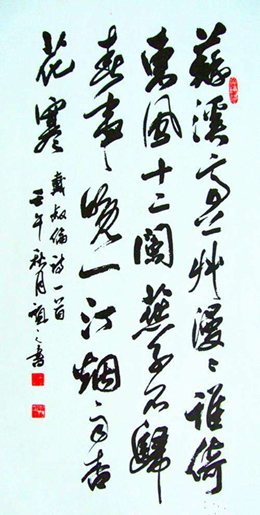 蘇溪亭上艸漫漫誰倚
東風十二闌燕子不歸
春事晚一汀烟雨杏
花寒
戴叔倫詩一首
壬午秋月 之書